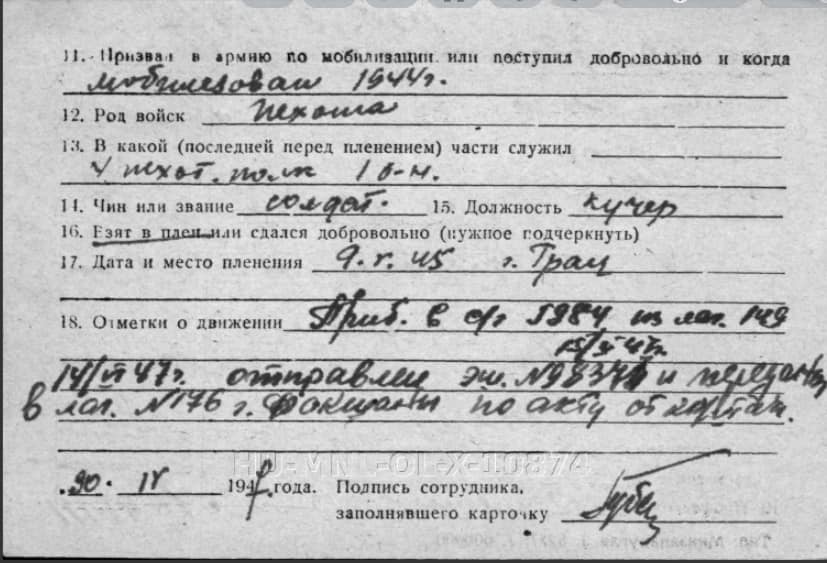 11. Призван в армию по мобилизации или поступил добровольно и когда
мобилизован 1944г.
12. Род войск пехота
13. В какой (последней перед пленением) части служил
4 пехот. полк 1 б-н.
14. Чин или звание солдат. 15. Должность кучер
16. Взят в плен или сдался добровольно (нужное подчеркнуть)
17. Дата и место пленения 9.V.45 г. Грац
18. Отметки о движении Приб. в с/г 5984 из лаг. 149
14/VI 47г. отправлен эш. № и передан
в лаг. №176 г. Фокшаны по акту от
HU-MNL-OL-X-10874
30. IV 194 года. Подпись сотрудника,
заполнявшего карточку